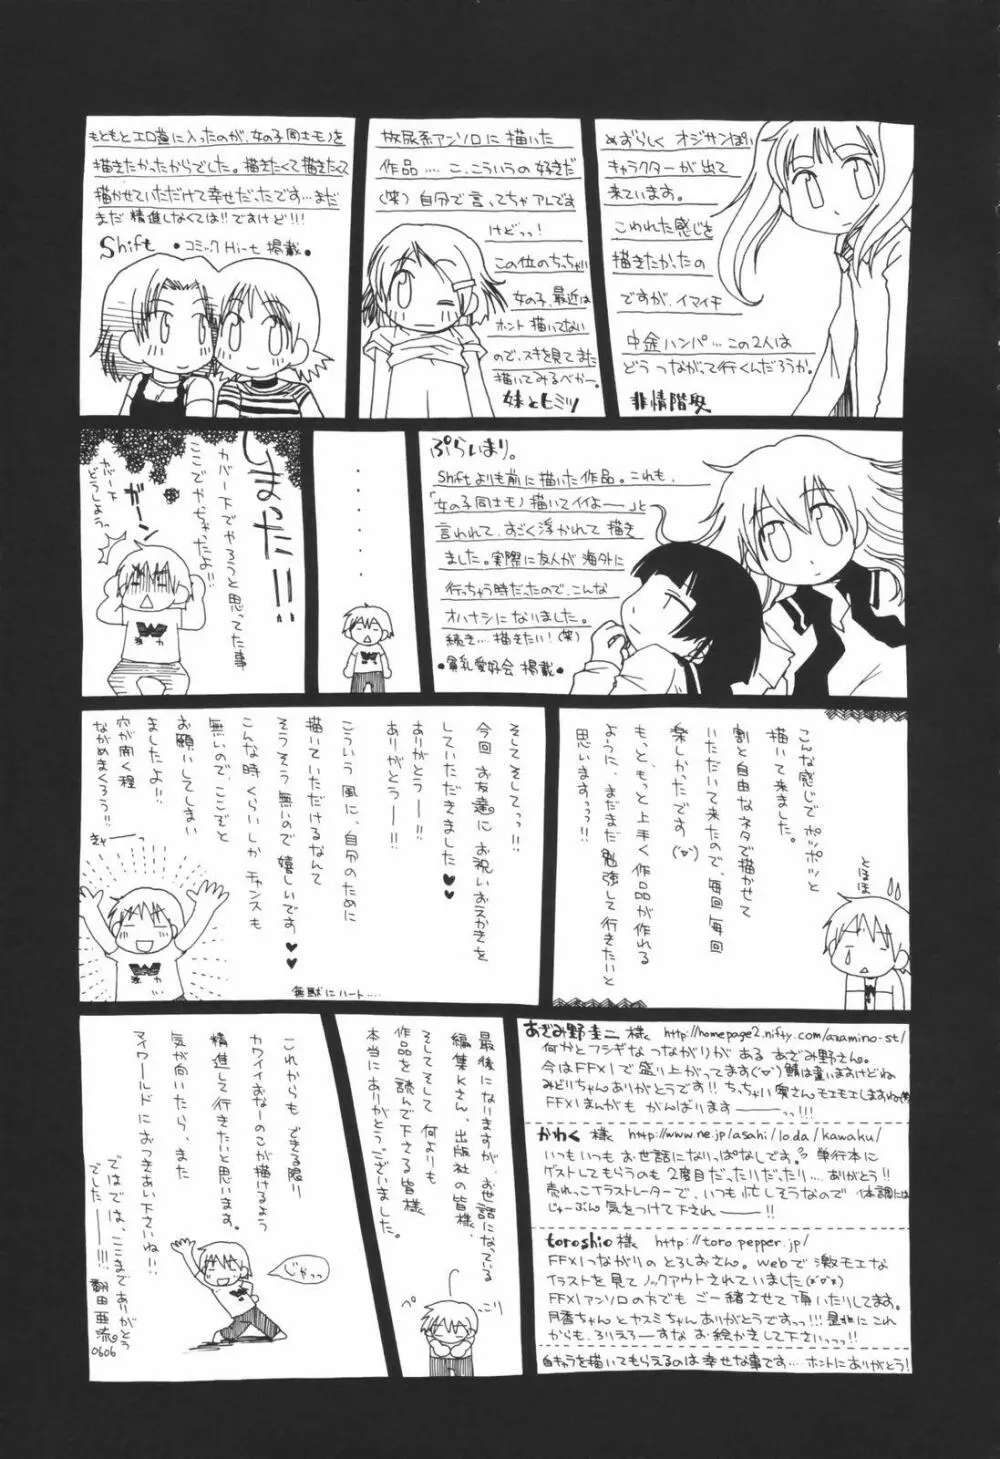 めずらしく オジサンぽい
キャラクターが出て
来ています。
こわれた感じを
描きたかったの
ですが、イマイチ
中途ハンパ…この2人は
どうつながって行くんだろうか。
非情階段
放尿系アンソロに描いた
作品…. こ、こういうの好きだ
(笑)自分で言ってちゃアレです
けどっっ!
この位のちっちゃい
女の子、最近は
ホント描いてない
ので、スキを見てまた
描いてみるべかー。
妹とヒミツ
もともとエロ畫に入ったのが、女の子同士モノを
描きたかったからでした。描きたくて描きたくて
描かせていただけて幸せだったです…まだ
まだ精進しなくては!!ですけど!!!
Shift ・コミックHi-t 掲載・
ぷらいまり。
Shiftよりも前に描いた作品。これも、
「女の子同士モノ描いてイイよーー」と
言われて、すごく浮かれて描き
ました。実際に友人が海外に
行っちゃう時だったので、こんな
オハナシになりました。
続き…描きたい!(笑)
・貧乳愛好会 掲載・
・・・・・
しまった!!
カバー下でやろうと思ってた事
ここでやっちゃったよ!!
ガーン
カバー下
どうしよう…
こんな感じで ポツポツと
描いて来ました。
割と自由なネタで描かせて
いただいて来たので、毎回毎回
楽しかったです(´▽`)
もっと、もっと上手く作品が作れる
ように、まだまだ勉強して行きたいと
思いますっっ!!
とほほ
そしてそしてっっ!!
今回お友達にお祝いおえかきを
していただきました♥♥
ありがとうー!!
ありがとうーー!!
こういう風に、自分のために
描いていただけるなんて
そうそう無いので嬉しいです♥♥
無駄にハート….
こんな時くらいしかチャンスも
無いので、ここぞと
お願いしてしまい
ましたよ!!
穴が開く程
ながめまくろう!!
きゃーーっ
あざみ野圭二 様 http://homepage2.nifty.com/azamino-st/
何かとフシギなつながりがある あざみ野さん。
今はFFXIで盛り上がってます(´▽`)鯖は違いますけどね
みどりちゃんありがとうです!!ちっちゃい奥さんモエモエしますね
FFXIまんがも がんばりますーーーっっ!!!
かわく 様 http://www.ne.jp/asahi/loda/kawaku/
いつもいつもお世話になりっぱなしです。単行本に
ゲストしてもらうのも2度目だったりだったり…ありがとう!!
売れっこイラストレーターで、いつも忙しそうなので 体調には
じゅーぶん気をつけて下されーーー!!
toroshio様 http://toro.pepper.jp/
FFXIつながりのとろしおさん。webで激モエな
イラストを見てノックアウトされていました
FFXIアンソロの方でも ご一緒させて頂いたりしてます。
月香ちゃんとヤスミちゃんありがとうですっっ!!!是非にこれ
からも、ろりえろーすな お絵かきして下さいっっっ!!
自キャラを描いてもらえるのは幸せな事です…ホントにありがとう!
最後になりますが、お世話になっている
編集Kさん、出版社の皆様、
そしてそして 何よりも
作品を読んで下さる皆様
本当にありがとうございました。
ぺ
こり
これからも できる限り
カワイイおなーのこが描けるよう
精進して行きたいと思います。
気が向いたら、また
マイワールドにおつきあい下さいね!!
ではでは、ここまでありがとう
でしたーーー!!!
翻田亜流。
0606
じゃっっ